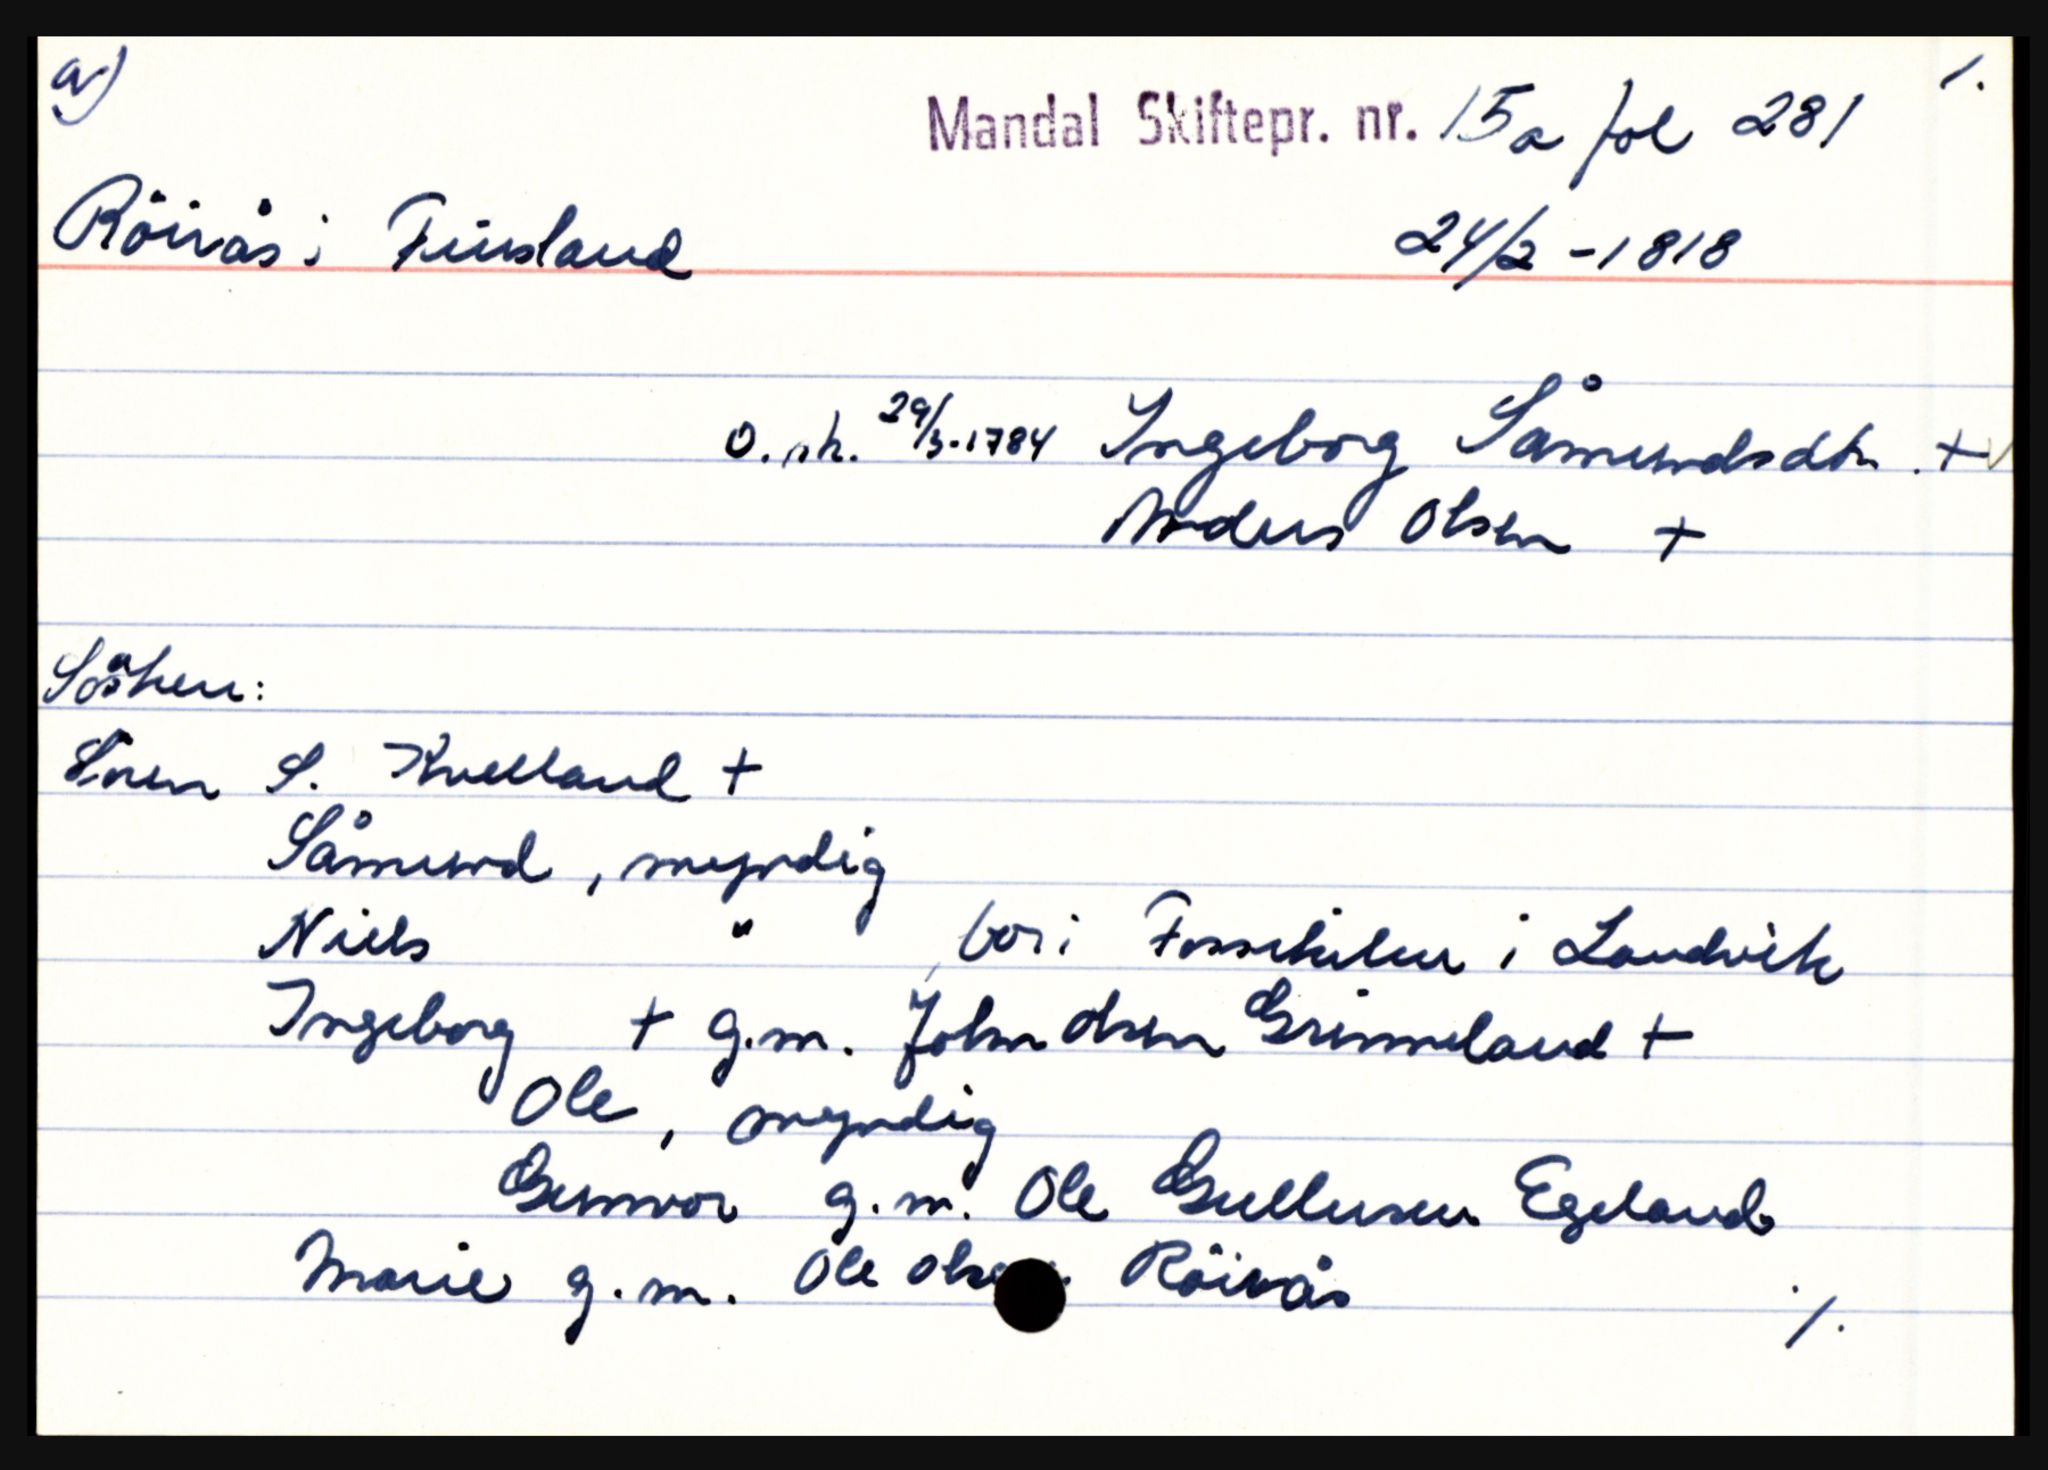 a)
1.
Mandal Skiftepr. nr. 15a fol 281
Röivås i Finsland
24/2 - 1818
o. sk. 29/3-1784 Ingeborg Såmundsdtr. + v
Anders Olsen +
Sösken:
Sören S. Kvelland +
Såmund, myndig
Niels " , bor i Fossekilen i Landvik
Ingeborg + g.m. John Olsen Grimeland +
Ole, myndig
Gunvor g.m. Ole Gullusen Egeland
Marie g.m. Ole Olsen Röivås
/.